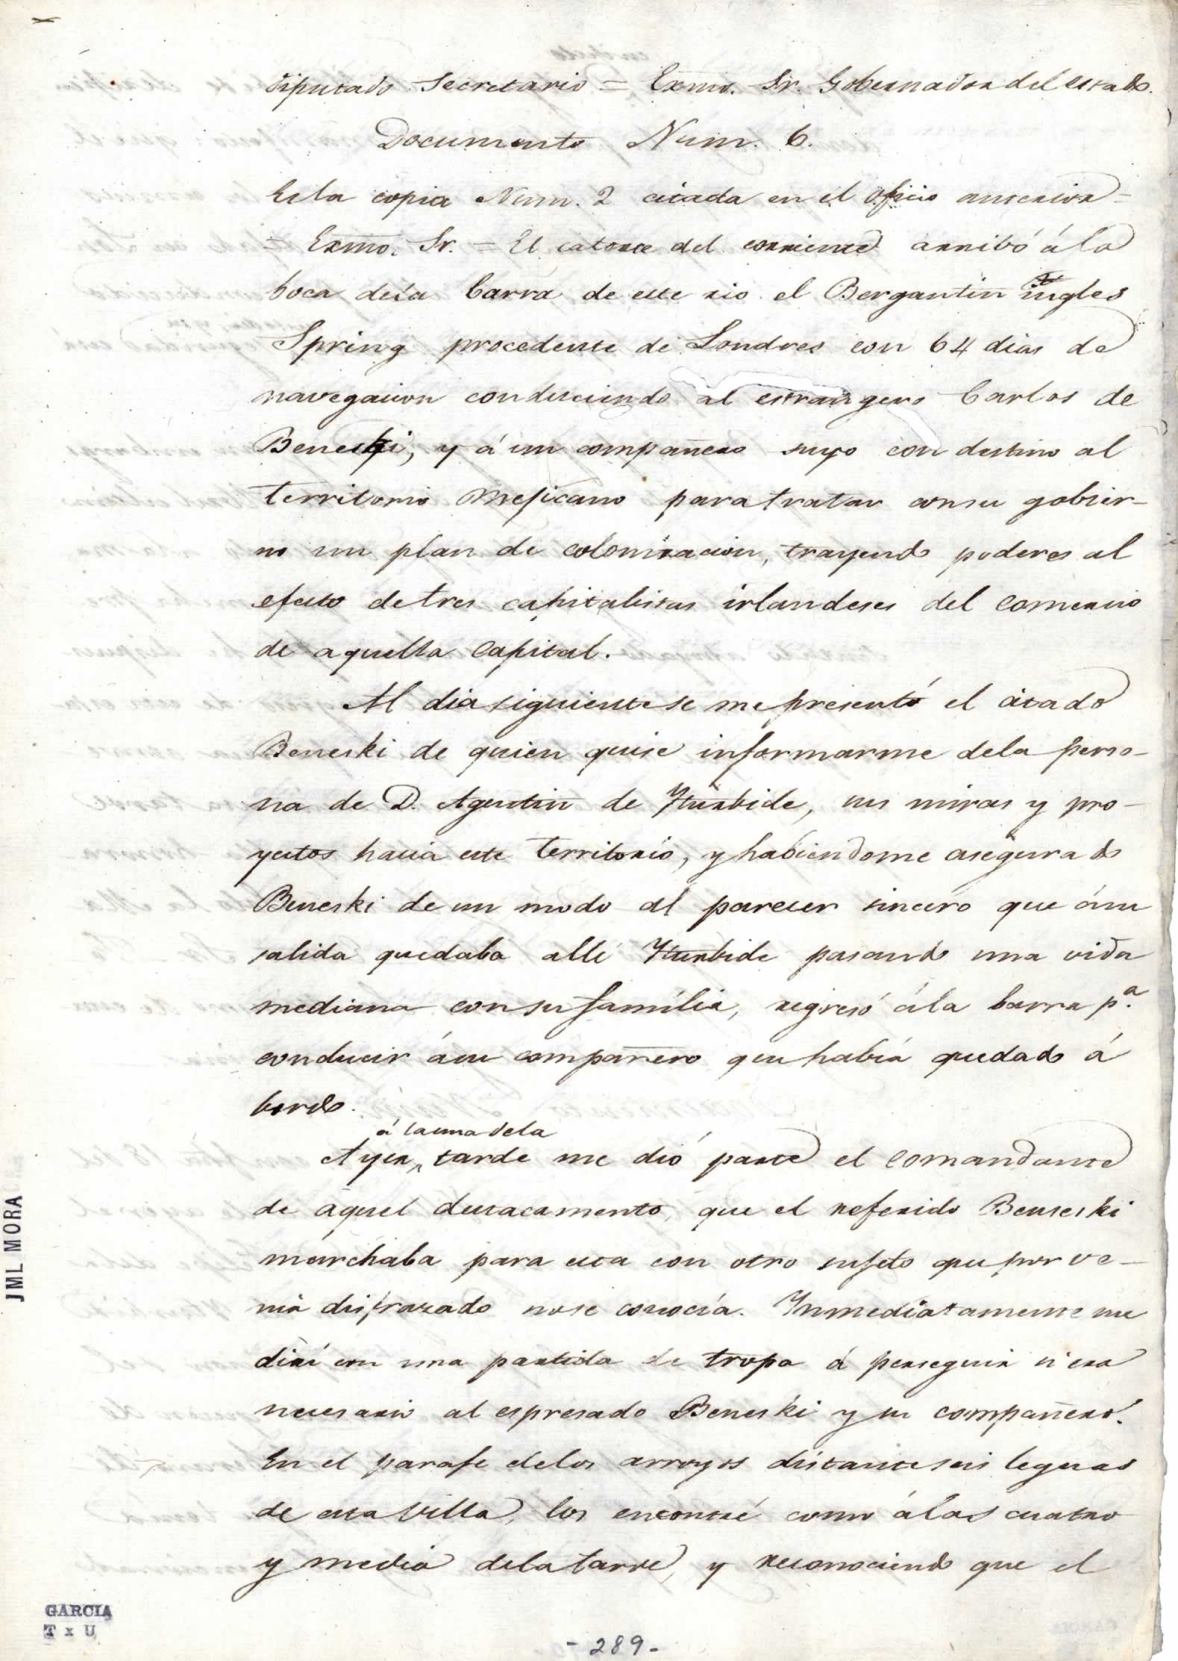 diputado Secretario = Exmo. Sr. Gobernador del estado.
Documento Num. 6.
Es la copia Num. 2 citada en el oficio anterior =
= Exmo. Sr. = El catorce del corriente arribó á la
boca dela barra de este rio el Bergantin ingles
Spring procedente de Londres con 64 dias de
navegacion conduciendo al estrangero Carlos de
Beneski, y á un compañero suyo con destino al
territorio Mejicano para tratar con su gobier-
no un plan de colonizacion, trayendo poderes al
efecto de tres capitalistas irlandeses del comercio
de aquella Capital.
Al dia siguiente se me presentó el citado
Beneski de quien quise informarme dela perso-
na de D. Agustin de Yturbide, sus miras y pro-
yectos hacia este territorio, y habiendome asegurado
Beneski de un modo al parecer sincero que ásu
salida quedaba allí Yturbide pasando una vida
mediana con su família, regresó á la barra pª.
conducir ásu compañero que habia quedado á
bordo.
á la una dela
Ayer tarde me dió parte el comandante
de aquel destacamento, que el referido Beneski
marchaba para esta con otro sujeto que por ve-
nir disfrazado no se conocía. Ynmediatamente me
dirijí con una partida de tropa á perseguir si era
necesario al espresado Beneski y su compañero.
En el paraje delos arroyos distante seis leguas
de esta villa, los encontré como á las cuatro
y media dela tarde, y reconociendo que el
JML MORA
GARCIA
T x U
- 289 -